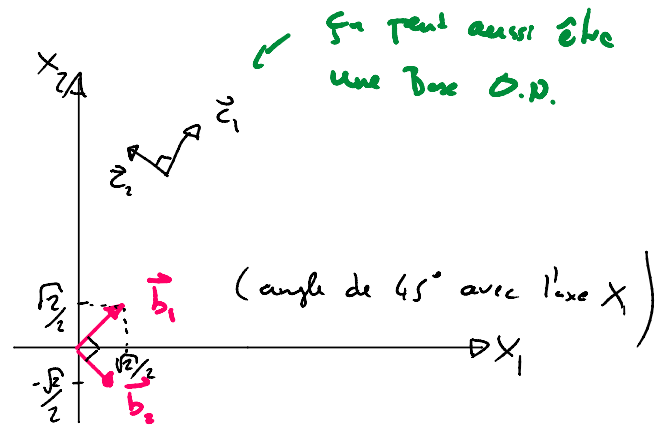 ça peut aussi être
une Base O.N.
X₂
c⃗₁
c⃗₂
√2/2
b⃗₁
(angle de 45° avec l'axe X₁)
√2/2
X₁
-√2/2
b⃗₂